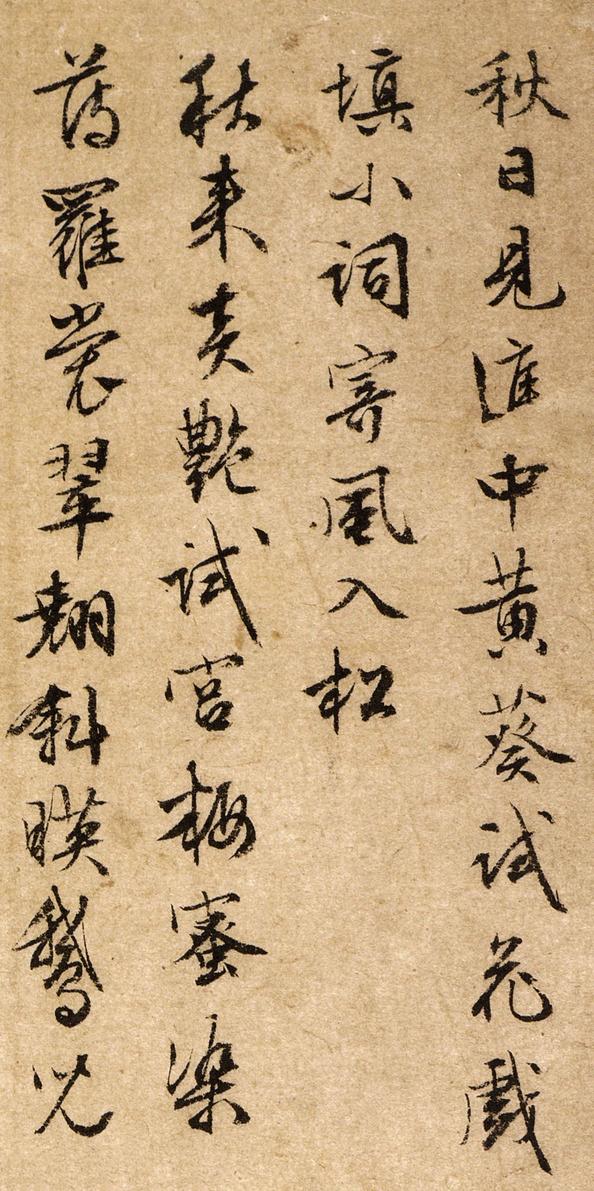 秋日見淮中黃葵試花戲
填小詞寄風入松
秋來美艷試宮梅蜜染
薄羅裳翠翹斜暎鵝兒